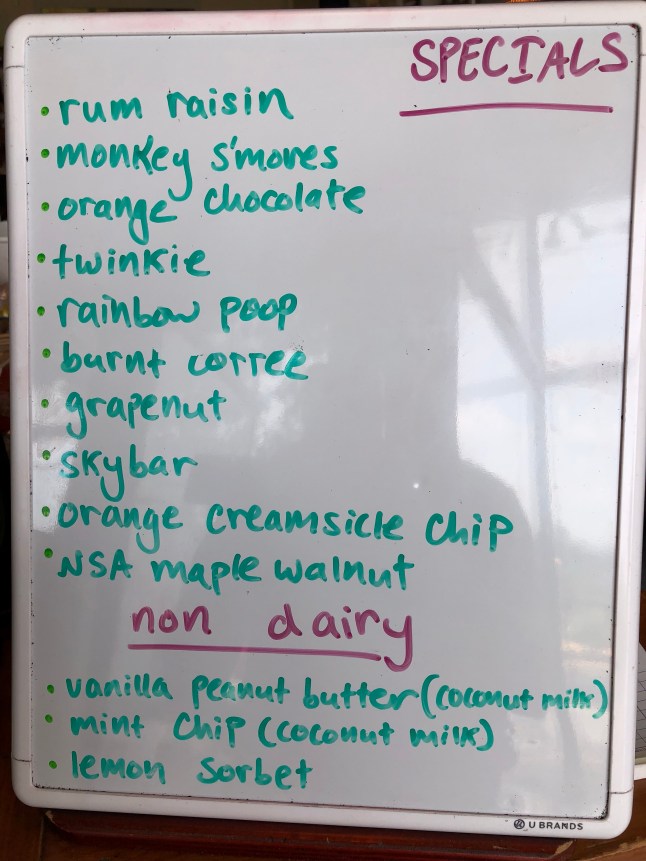 SPECIALS
• rum raisin
• monkey s'mores
• orange chocolate
• twinkie
• rainbow poop
• burnt coffee
• grapenut
• skybar
• orange creamsicle chip
• NSA maple walnut
non dairy
• vanilla peanut butter (coconut milk)
• mint chip (coconut milk)
• lemon sorbet
U BRANDS